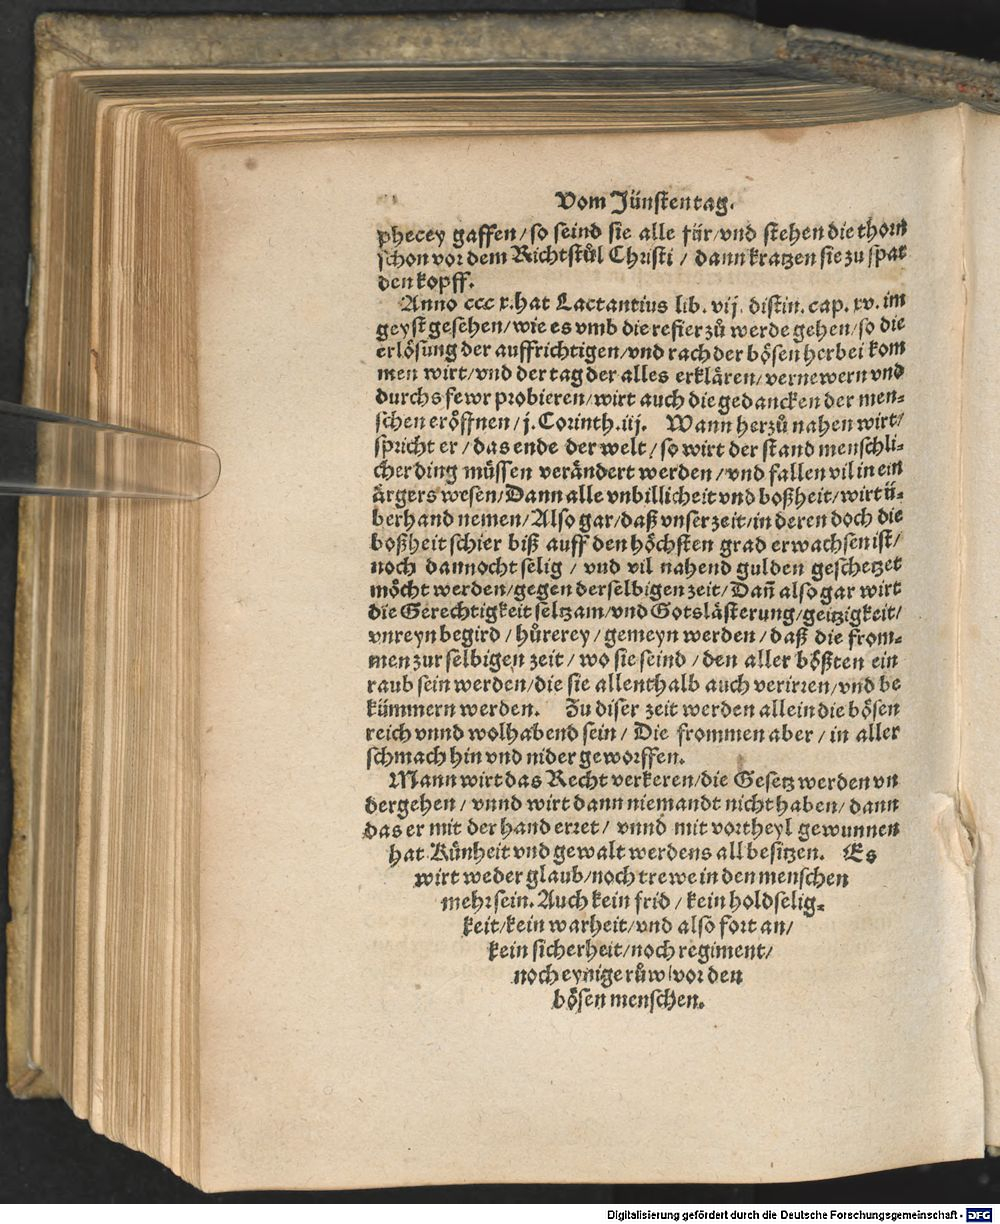 Vom Jünstentag.
phecey gaffen/so seind sie alle für/vnd stehen die thorn
schon vor dem Richtstůl Christi / dann kratzen sie zu spat
den kopff.
Anno ccc x. hat Lactantius lib. vij. distin. cap. xv. im
geyst gesehen/wie es vmb die refier zů werde gehen/so die
erlösung der auffrichtigen/vnd rach der bösen herbei kom
men wirt/vnd der tag der alles erklären/vernewern vnd
durchs fewr probieren/wirt auch die gedancken der men⸗
schen eröffnen/j. Corinth. iij. Wann herzů nahen wirt/
spricht er/das ende der welt/so wirt der stand menschli⸗
cher ding müssen verändert werden/vnd fallen vil in ein
ärgers wesen/Dann alle vnbillicheit vnd boßheit/wirt ü⸗
berhand nemen/Also gar/daß vnser zeit/in deren doch die
boßheit schier biß auff den höchsten grad erwachsen ist/
noch dannocht selig / vnd vil nahend gulden geschetzet
möcht werden/gegen derselbigen zeit/Dañ also gar wirt
die Gerechtigkeit seltzam/vnd Gotslästerung/geitzigkeit/
vnreyn begird/hůrerey/gemeyn werden/daß die from⸗
men zur selbigen zeit/wo sie seind/den aller bößten ein
raub sein werden/die sie allenthalb auch verirren/vnd be
kümmern werden. Zu diser zeit werden allein die bösen
reich vnnd wolhabend sein/Die frommen aber/in aller
schmach hin vnd nider geworffen.
Mann wirt das Recht verkeren/die Gesetz werden vn
dergehen/vnnd wirt dann niemandt nicht haben/dann
das er mit der hand erret/vnnd mit vortheyl gewunnen
hat. Künheit vnd gewalt werdens all besitzen. Es
wirt weder glaub/noch trewe in den menschen
mehr sein. Auch kein frid/kein holdselig⸗
keit/kein warheit/vnd also fort an/
kein sicherheit/noch regiment/
noch eynige růw/vor den
bösen menschen.
Digitalisierung gefördert durch die Deutsche Forschungsgemeinschaft - DFG